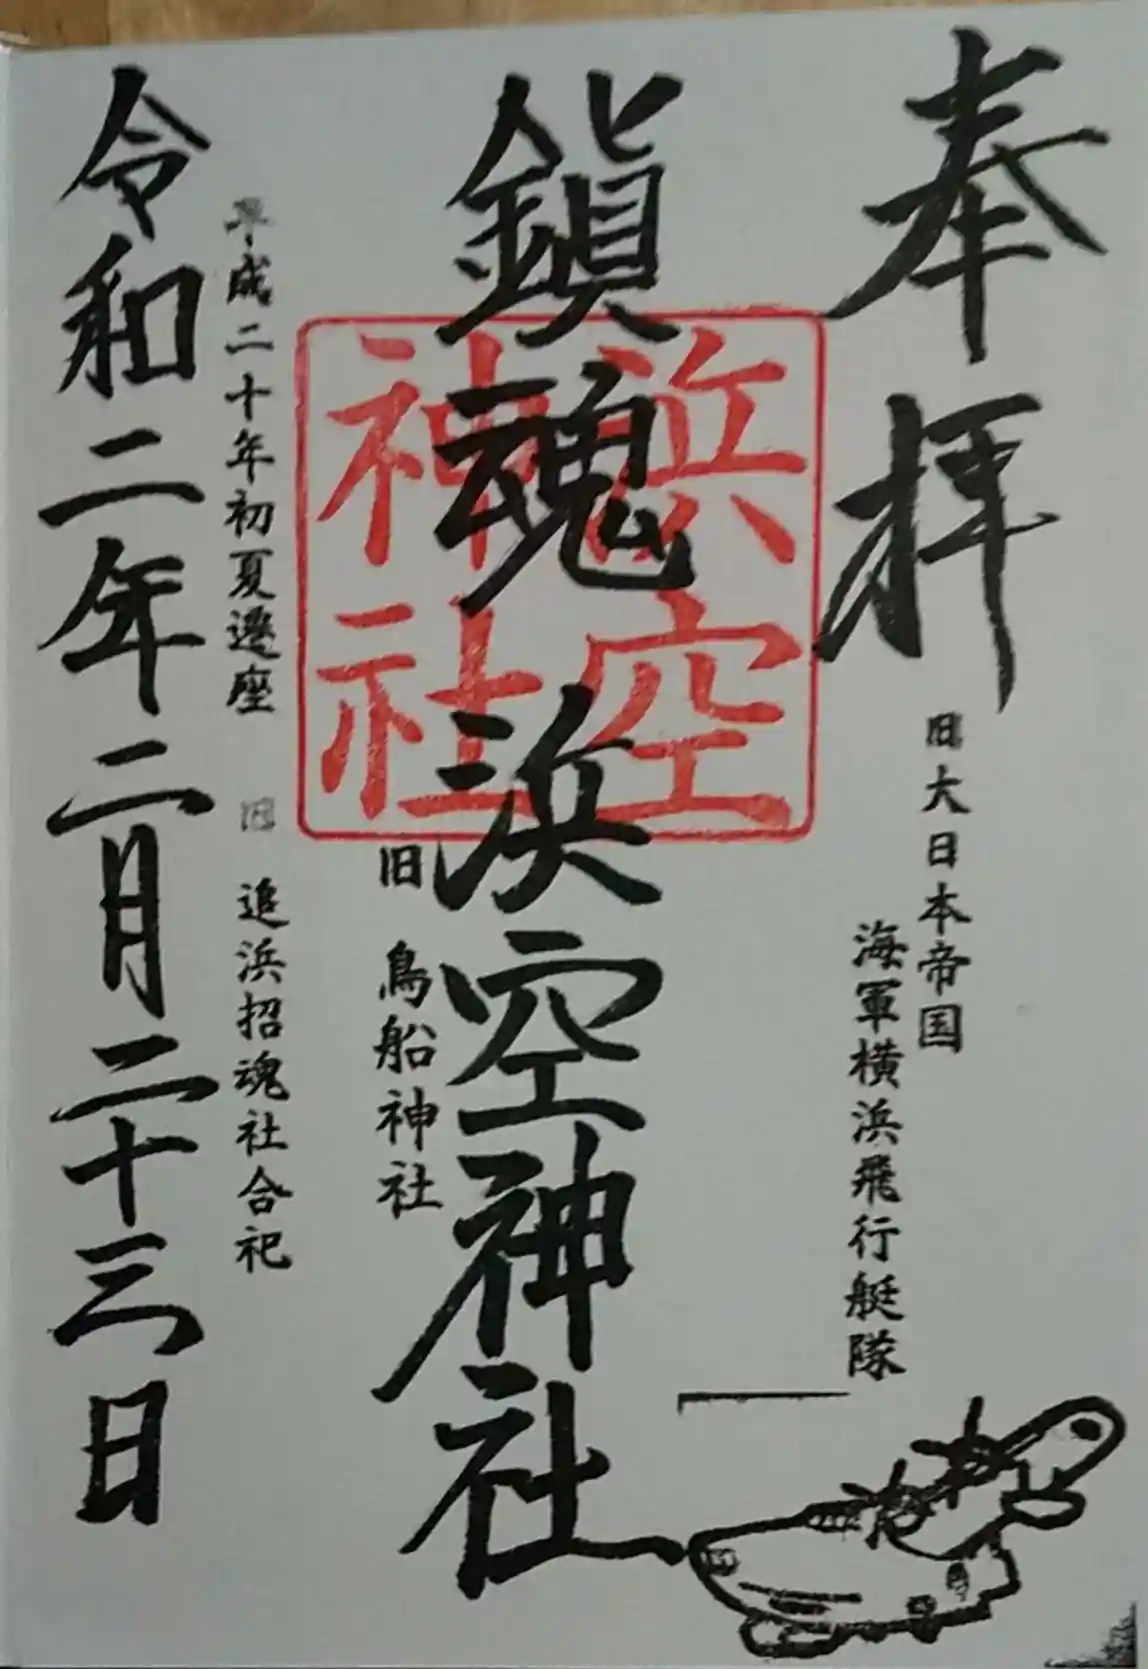 奉拝
旧大日本帝国
海軍横浜飛行艇隊
鎮魂 浜空神社
浜空
神社
旧 鳥船神社
平成二十年初夏遷座 旧 追浜招魂社合祀
令和二年二月二十三日